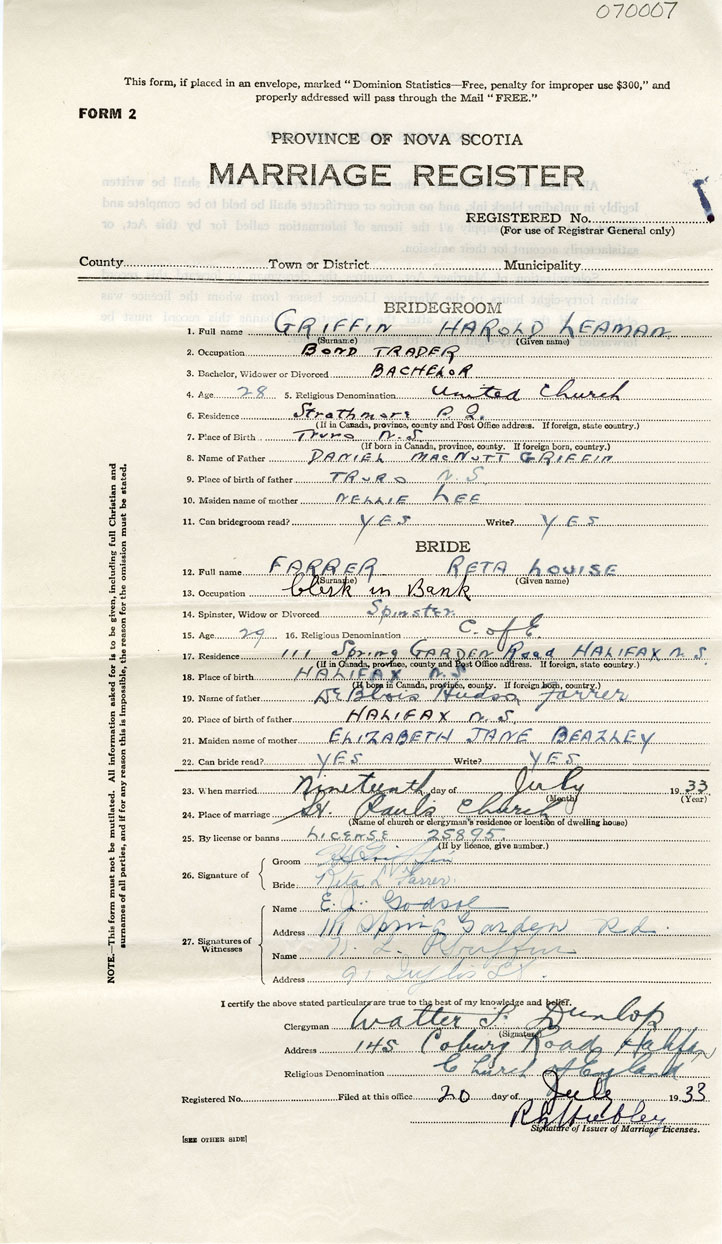 070007
This form, if placed in an envelope, marked "Dominion Statistics—Free, penalty for improper use $300," and
properly addressed will pass through the Mail "FREE."
FORM 2
PROVINCE OF NOVA SCOTIA
MARRIAGE REGISTER
REGISTERED No.
(For use of Registrar General only)
County Town or District Municipality
BRIDEGROOM
1. Full name GRIFFIN HAROLD LEAMAN
(Surname) (Given name)
2. Occupation BOND TRADER
3. Bachelor, Widower or Divorced BACHELOR
4. Age 28 5. Religious Denomination United Church
6. Residence Strathmore P.Q.
(If in Canada, province, county and Post Office address. If foreign, state country.)
7. Place of Birth Truro N.S.
(If born in Canada, province, county. If foreign born, country.)
8. Name of Father DANIEL MACNUTT GRIFFIN
9. Place of birth of father TRURO N.S
10. Maiden name of mother NELLIE LEE
11. Can bridegroom read? YES Write? YES
BRIDE
12. Full name FARRER RETA LOUISE
(Surname) (Given name)
13. Occupation Clerk in Bank
14. Spinster, Widow or Divorced Spinster
15. Age 29 16. Religious Denomination C. of E.
17. Residence 111 Spring GARDEN Road HALIFAX N.S.
(If in Canada, province, county and Post Office address. If foreign, state country.)
18. Place of birth HALIFAX N.S.
(If born in Canada, province, county. If foreign born, country.)
19. Name of father DeBlois Hudson Farrer
20. Place of birth of father HALIFAX N.S.
21. Maiden name of mother ELIZABETH JANE BEAZLEY
22. Can bride read? YES Write? YES
23. When married Nineteenth day of July 1933
(Month) (Year)
24. Place of marriage St. Paul's Church
(Name of church or clergyman's residence or location of dwelling house)
25. By license or banns LICENSE 25895.
(If by licence, give number.)
26. Signature of Groom H L Griffin
Bride Rita L Farrer.
27. Signatures of Witnesses
Name E. L. Godsoe
Address 111 Spring Garden Rd.
Name
Address 91 St.
I certify the above stated particulars are true to the best of my knowledge and belief.
Clergyman Walter P. Dunlop
(Signature)
Address 145 Coburg Road, Halifax
Religious Denomination Church of England
Registered No. Filed at this office 20 day of July 1933
Signature of Issuer of Marriage Licenses.
[SEE OTHER SIDE]
NOTE.—This form must not be mutilated. All information asked for is to be given, including full Christian and
surnames of all parties, and if for any reason this is impossible, the reason for the omission must be stated.